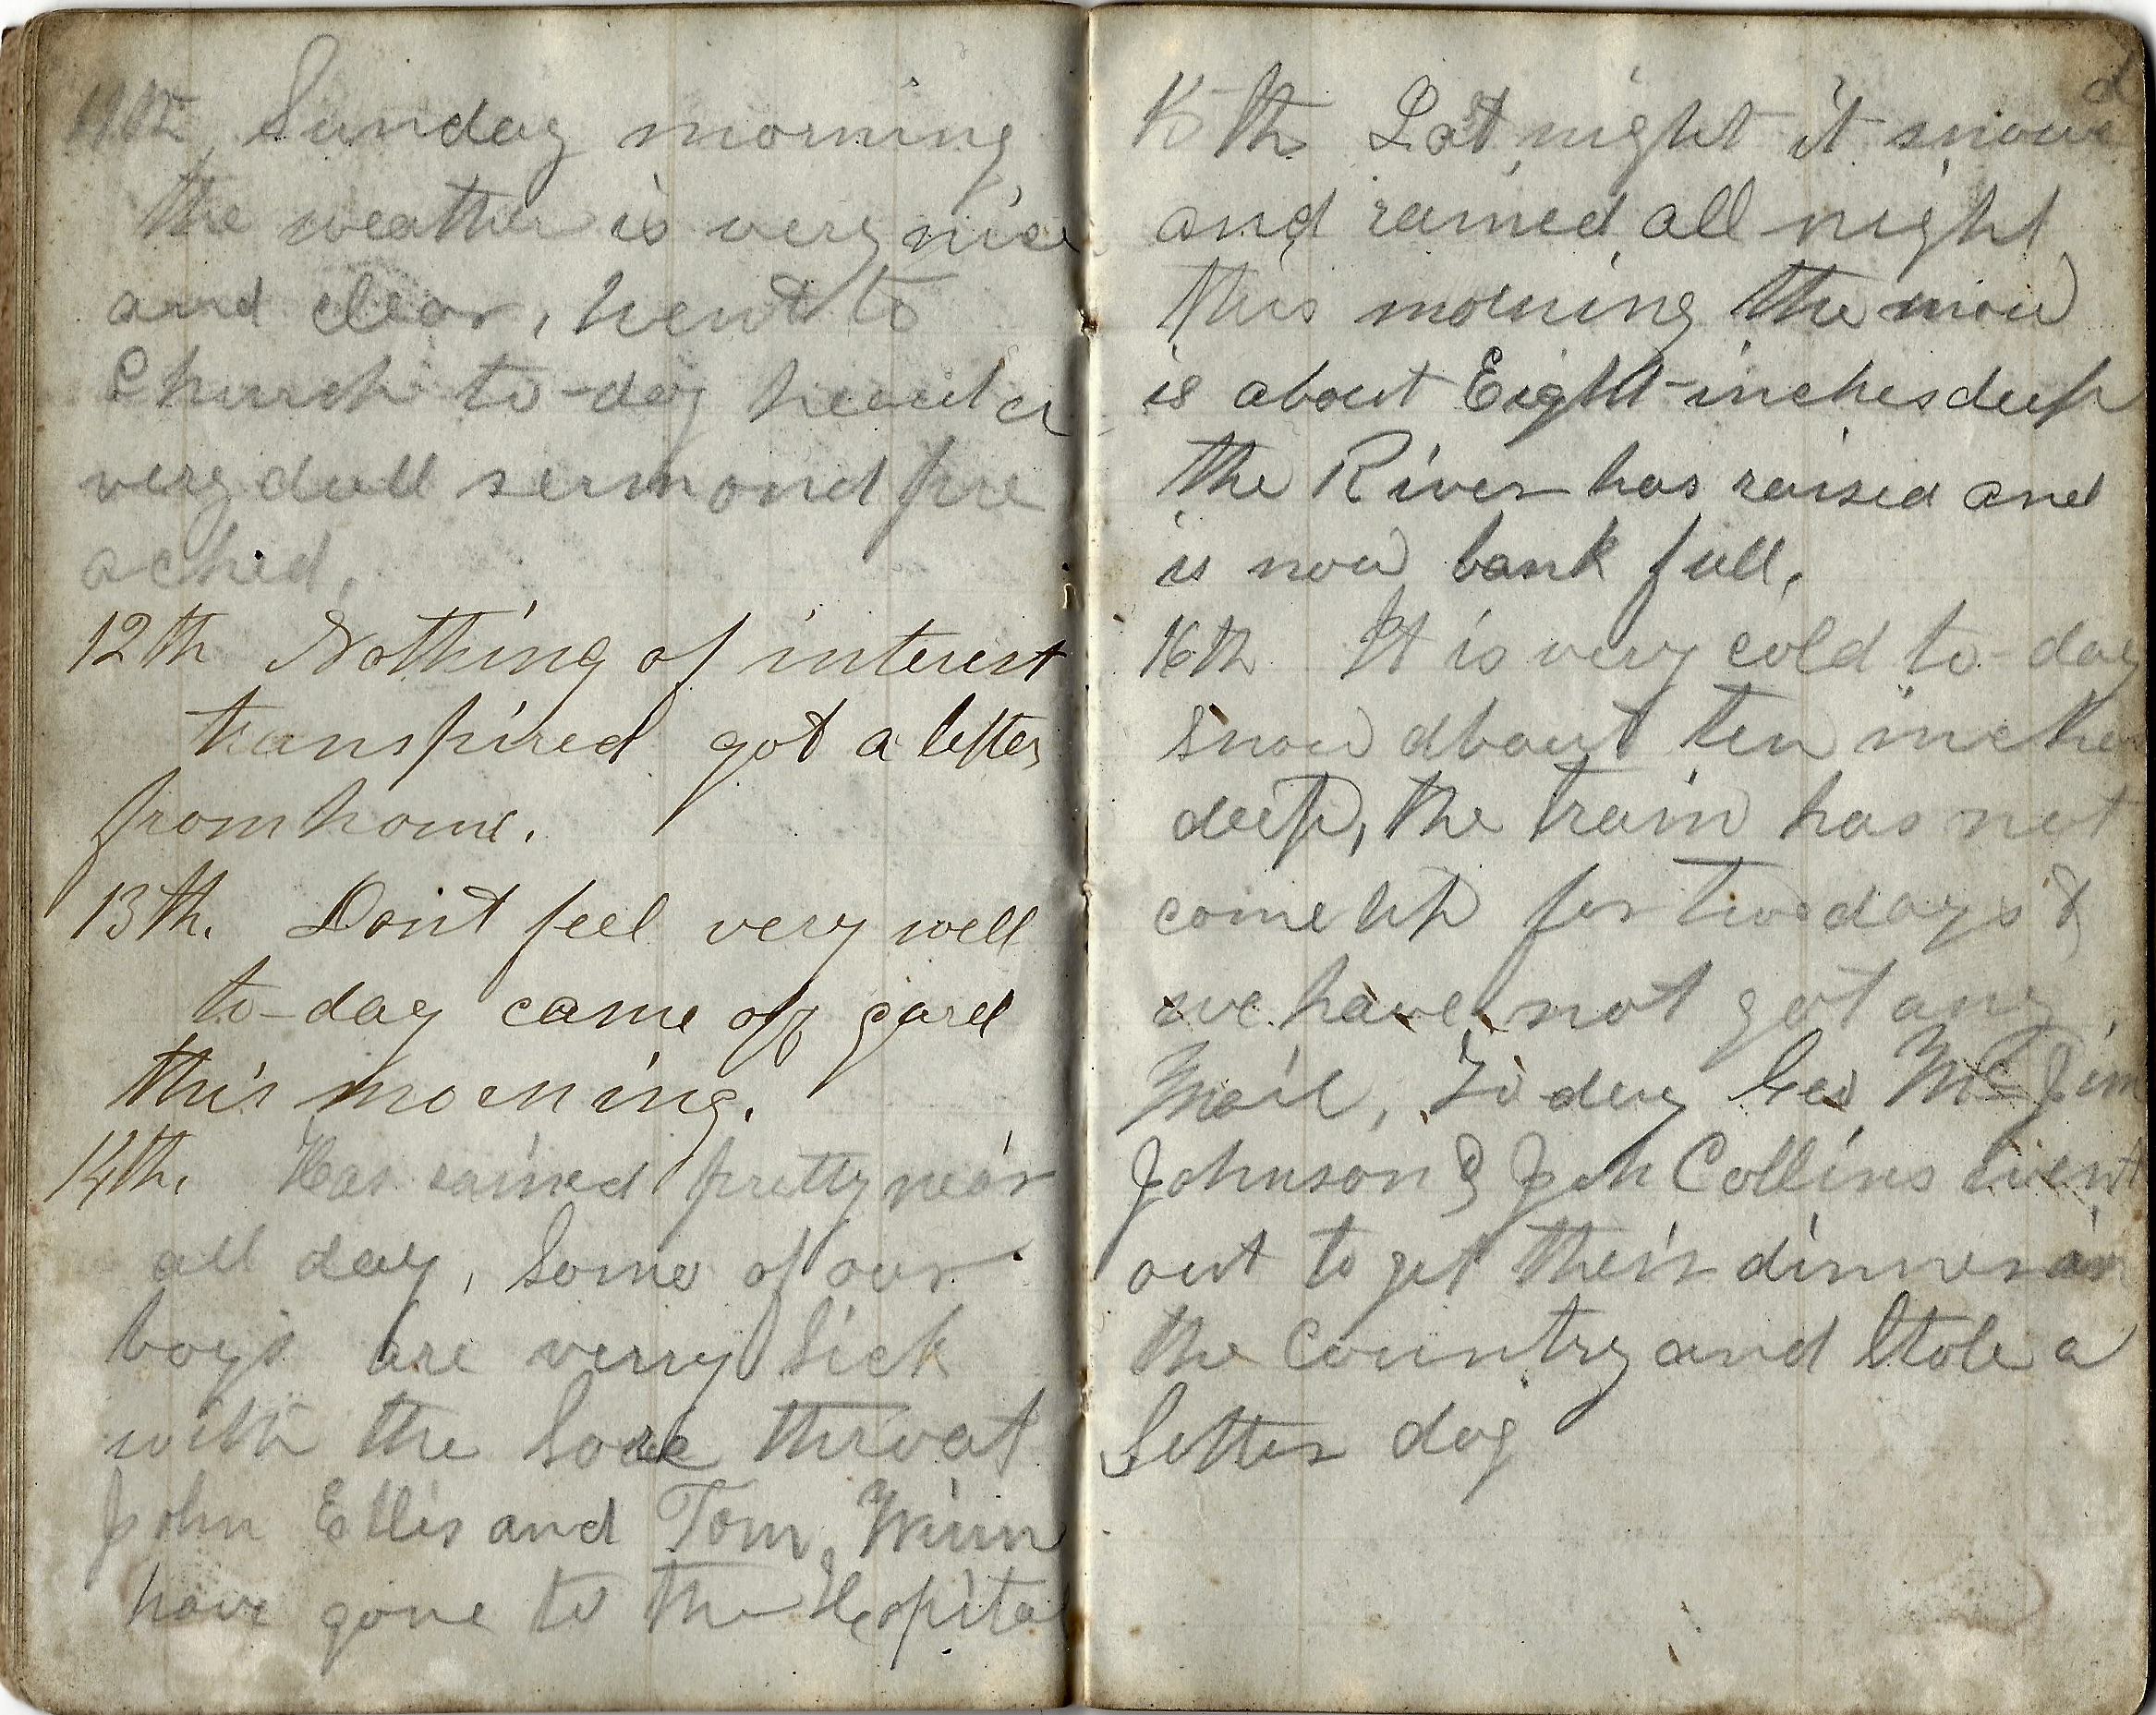 11th Sunday morning
the weather is very nice
and clear, went to
Church to-day heard a
very dull sermond pre
ached.
12th Nothing of interest
transpired got a letter
from home.
13th. Dont feel very well
to-day came off gard
this morning.
14th. Has rained pretty near
all day, Some of our
boys are verry Sick
with the Sore throat
John Ellis and Tom Winn
have gone to the Hospital
15th Last night it snowed
and rained all night
this morning the snow
is about Eight inches deep
the River has raised and
is now bank full,
16th It is very cold to-day
Snow about ten inches
deep, the train has not
come up for two days &
we have not got any
Mail, To day Geo Mc Jim
Johnson & Joh Collins went
out to get their dinner in
the Country and Stole a
Setter dog